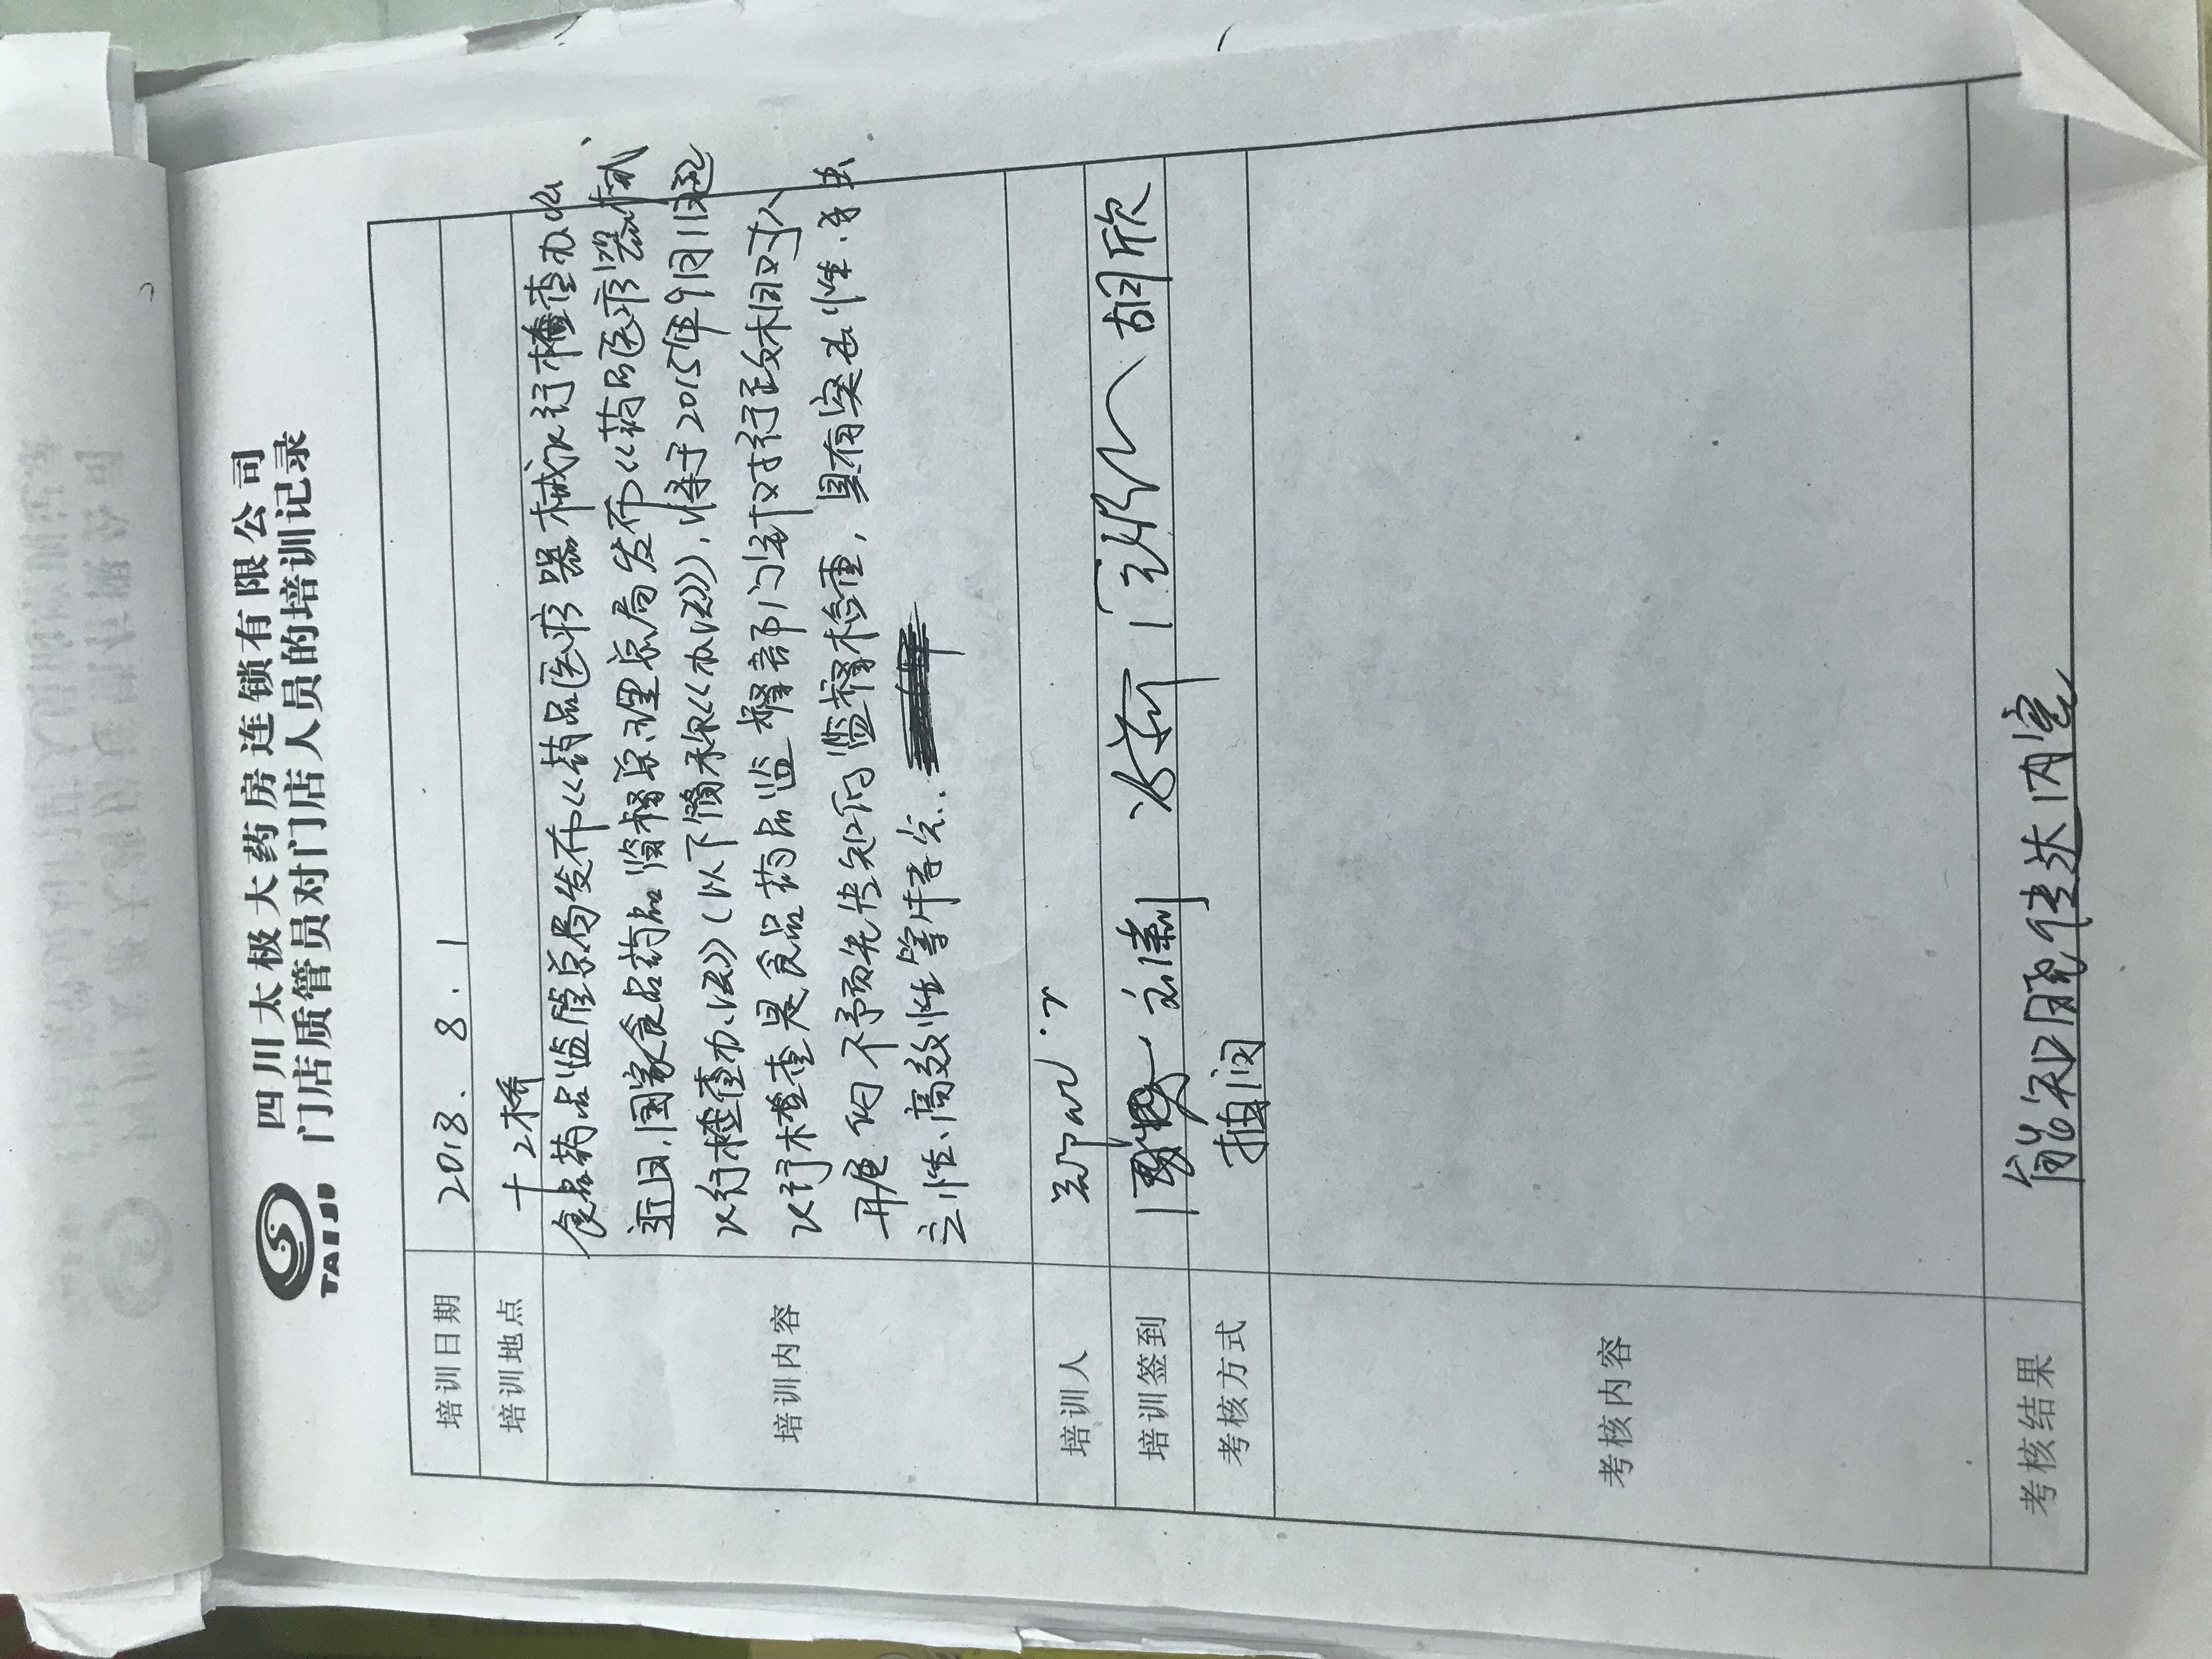 四川太极大药房连锁有限公司
TAIJI 门店质管员对门店人员的培训记录
培训日期 2018.8.1
培训地点 十2桥
培训内容
食品药品监管总局发布《药品医疗器械飞行检查办法
近日,国家食品药品监督管理总局发布《药品医疗器械
飞行检查办法》(以下简称《办法》),将于2015年9月1日起
飞行检查是食品药品监督部门针对行政相对人
开展的不予预先告知的监督检查,具有突击性.
立性、高效性等特点.
培训人
培训签到 胡欣
考核方式 抽问
考核内容
考核结果 能知晓传达内容